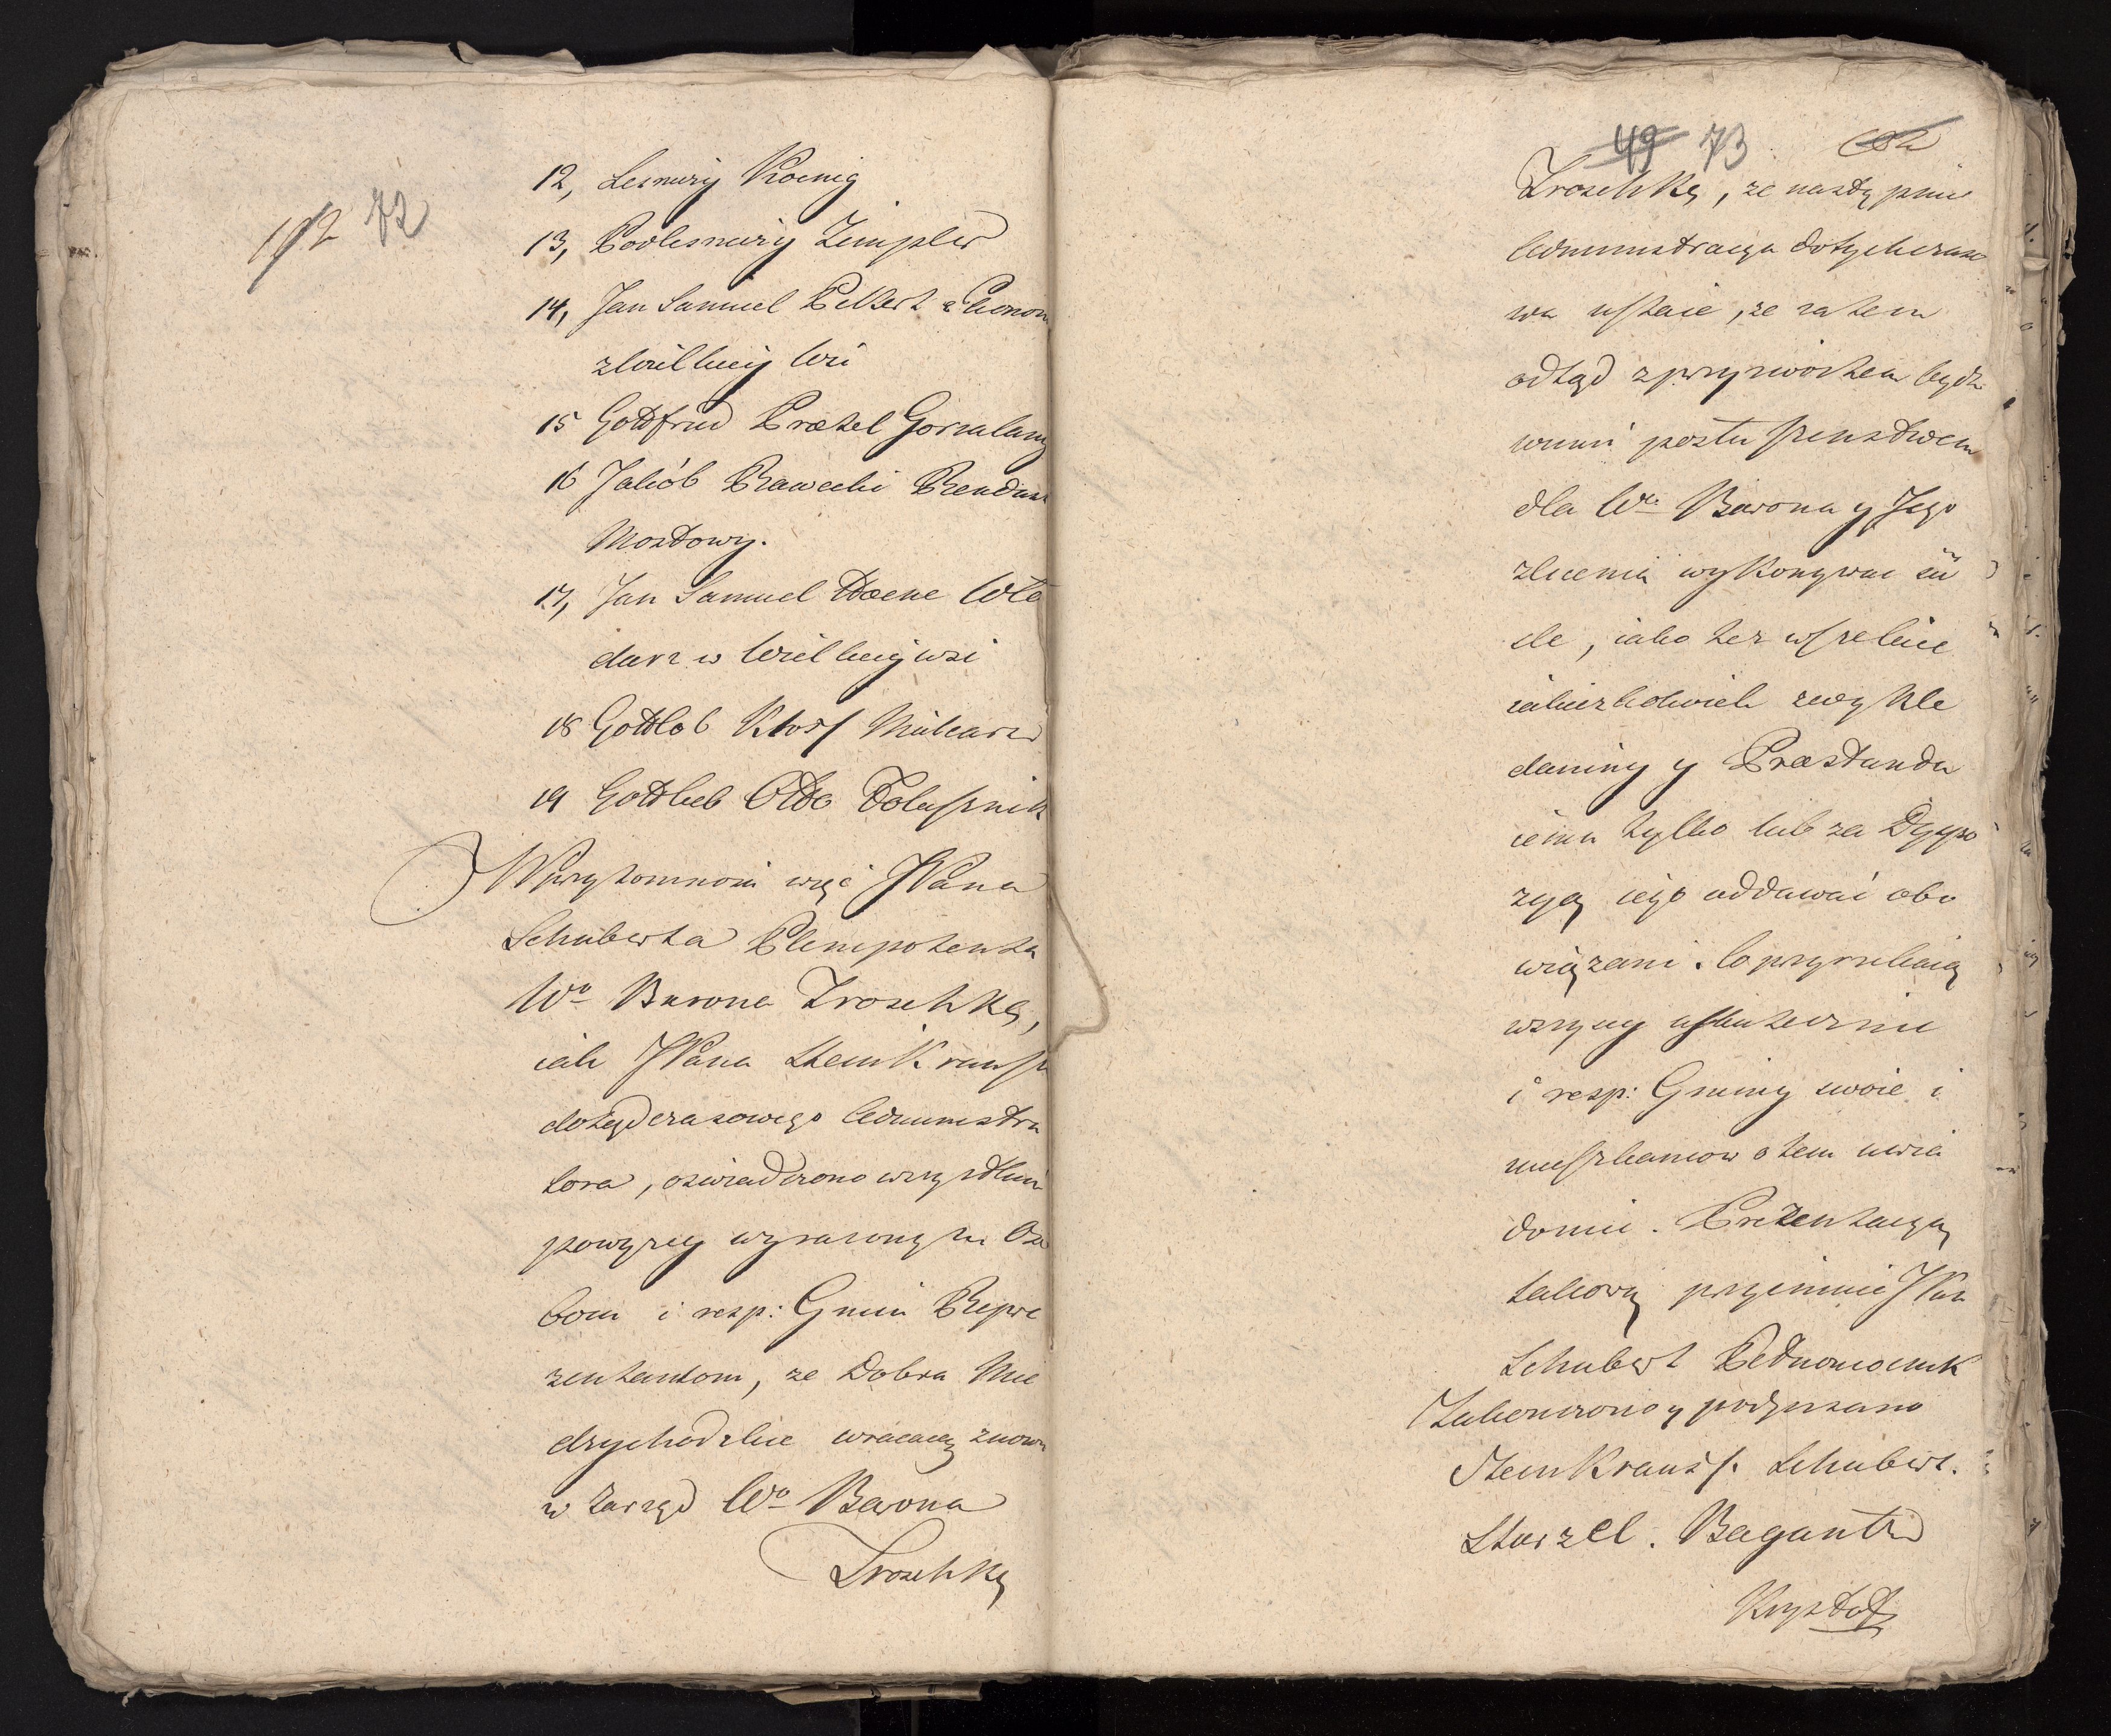 112 72
12, Lesniczy Koenig
13, Podlesniczy Zimpler
14, Jan Samuel Pelkert Ekonom
z Wielkiey Wsi
15 Gottfried Praetel Gorzalany
16 Jakób Rawecki Rendant
Mostowy.
17, Jan Samuel Haene Wło
darz w Wielkiey wsi
18 Gottlob Kloss Mielcarz
19 Gottlieb Otto Folusznik
W przytomnosci więc JPana
Schuberta Plenipotenta
Wo Barona Troschkę,
iak JPana Steinkrausza
dotądczasowego Administra
tora, oswiadczono wszystkim
powyzey wyrazonym Oso
bom i resp: Gmin Repre
zentantom, ze Dobra Mie
dzychodzkie wracaią znowu
w Zarząd Wo Barona
Troschkę
49 73
Troschkę, ze następnie
Administracya dotychczaso
wa ustaie, ze zatem
odtąd z przyzwoitem bydz
winni posłuszenstwem
dla Wo Barona y Jego
zlecenia wykonywac sci
sle, iako tez wszelkie
iakiezkolwiek zwykle
daniny y Praestanda
iemu tylko lub za Dyspo
zycyą iego oddawać obo
wiązani. Co przyrzekaią
wszyscy uskutecznic
i resp: Gminy swoie i
mieszkancow o tem uwia
domic. Prezentacyą
takową przyimuie JPan
Schubert Pełnomocnik
Zakonczono y podpisano
Steinkrauss. Schubert.
Sturzel. Bagantz
Krysztof